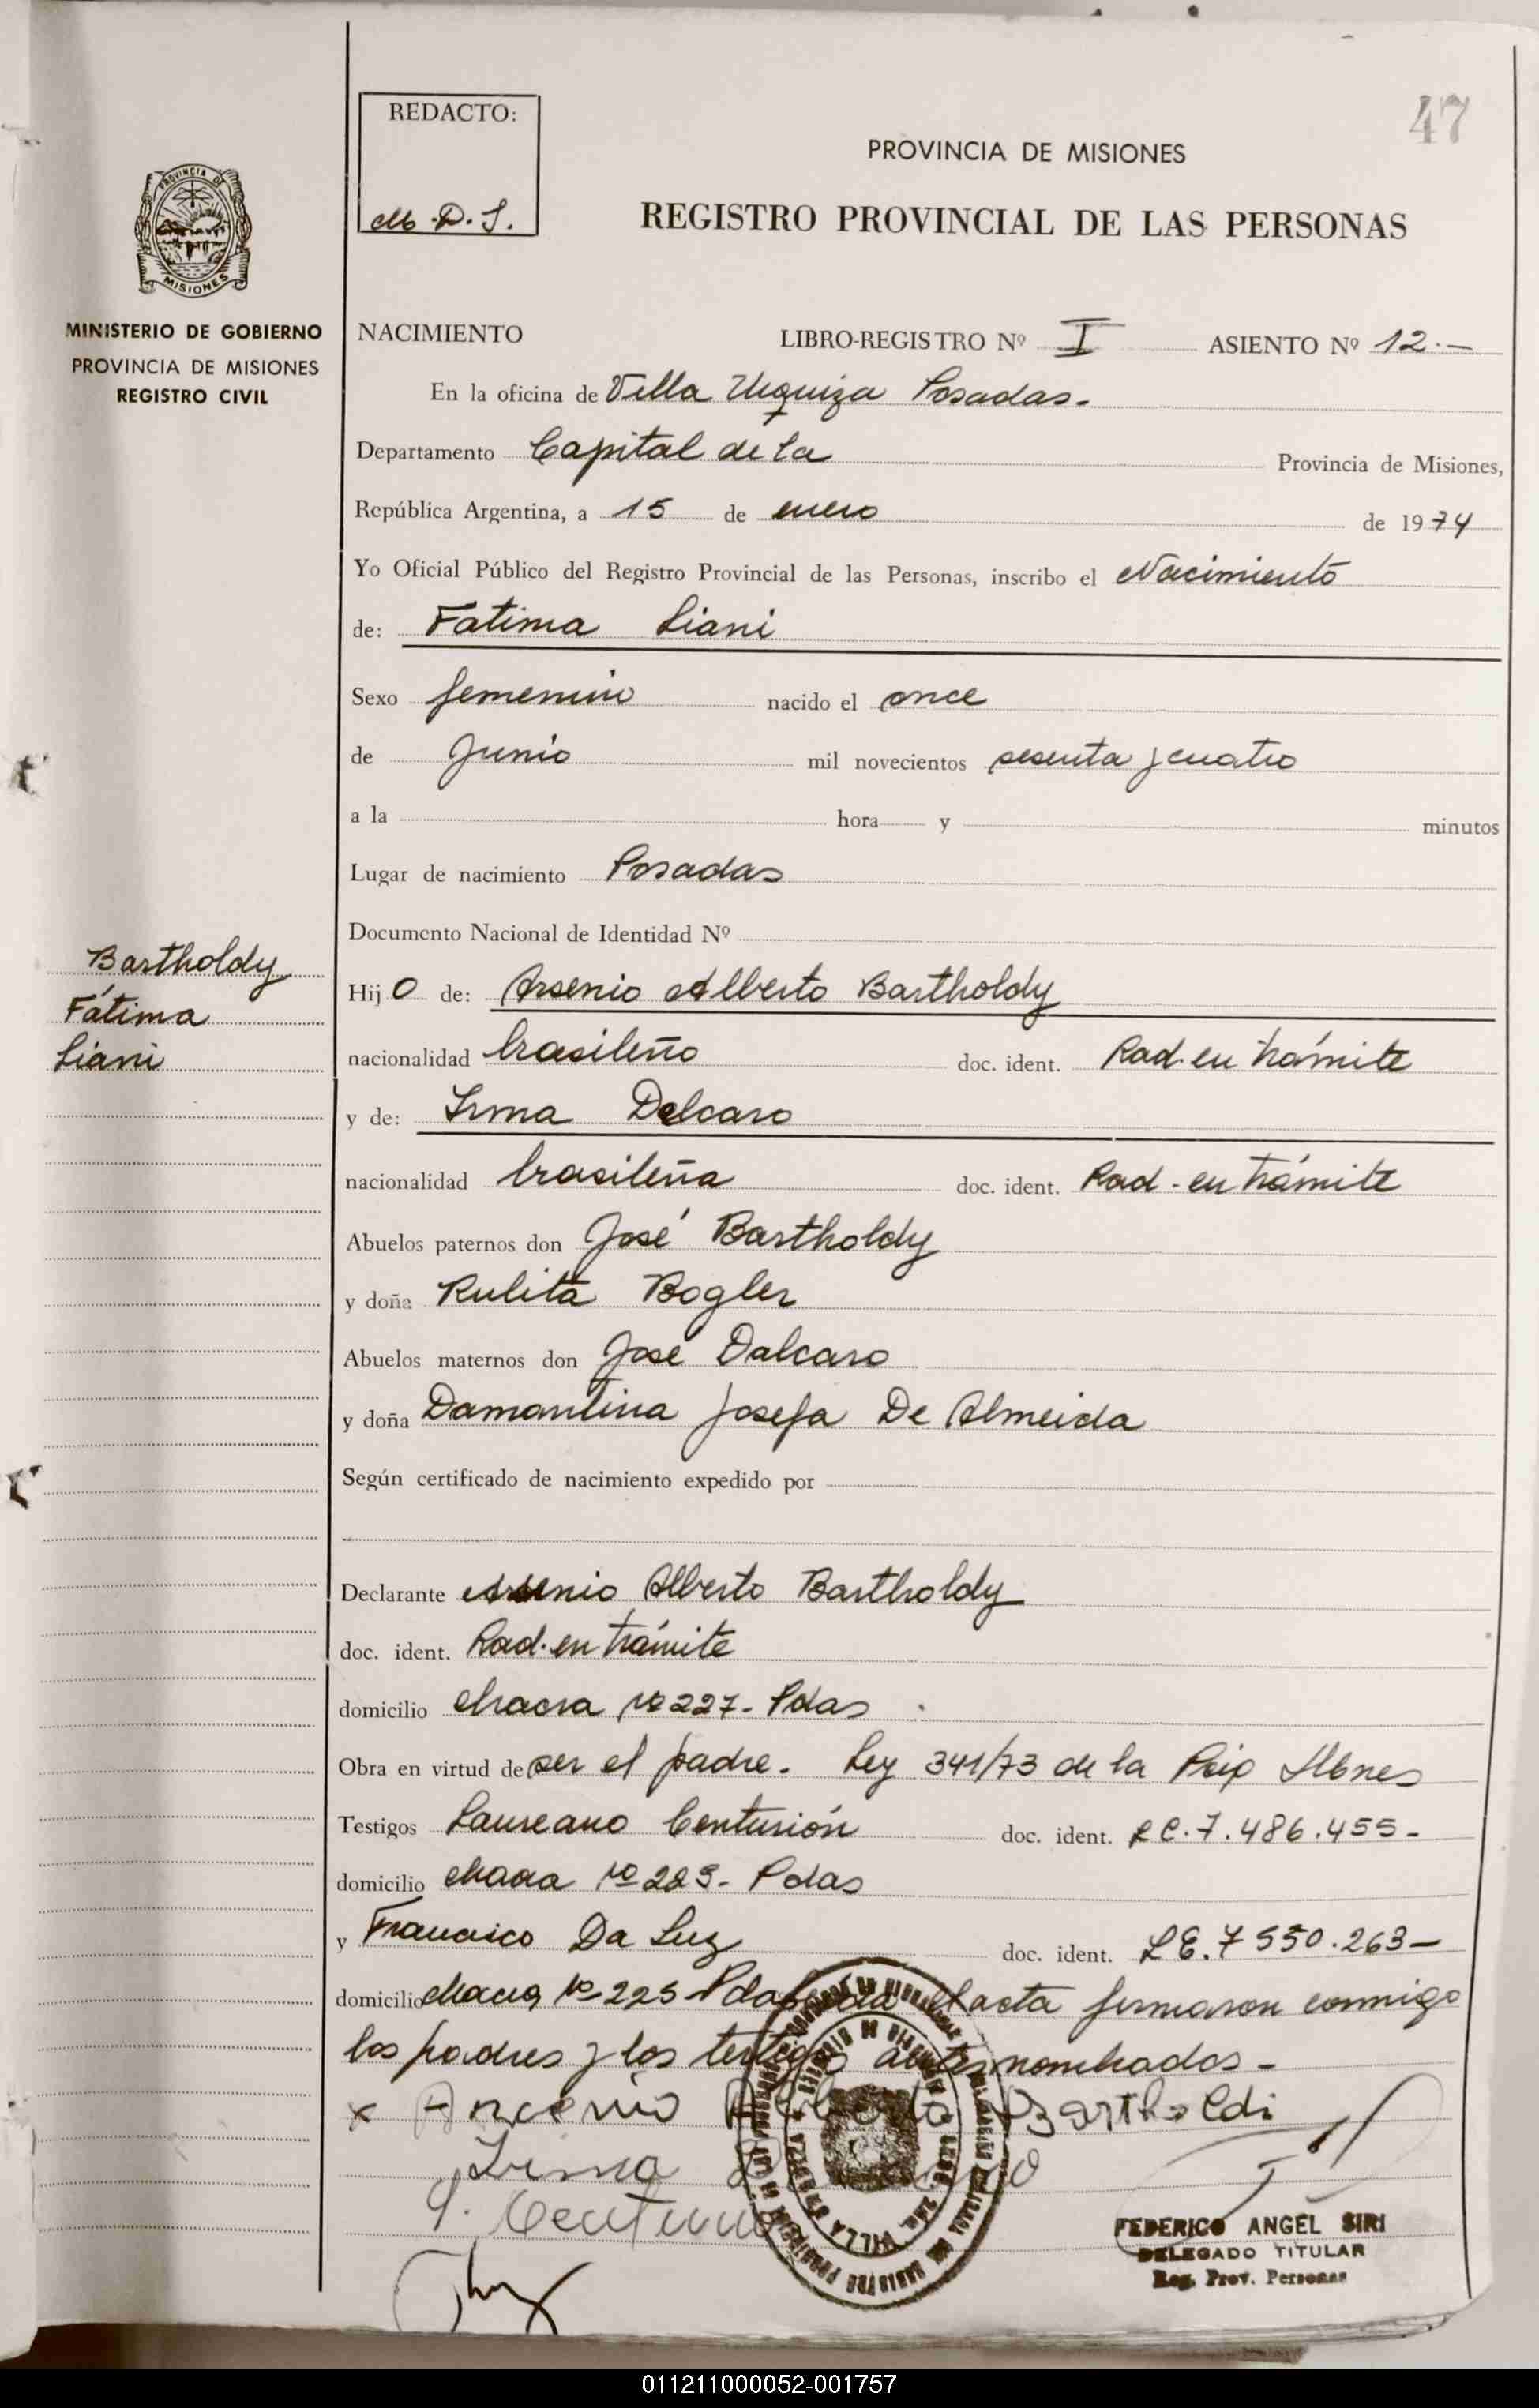 47
REDACTO:
M. D. S.
PROVINCIA DE MISIONES
REGISTRO PROVINCIAL DE LAS PERSONAS
PROVINCIA DE
MISIONES
MINISTERIO DE GOBIERNO
PROVINCIA DE MISIONES
REGISTRO CIVIL
NACIMIENTO LIBRO-REGISTRO Nº I ASIENTO Nº 12.—
En la oficina de Villa Urquiza Posadas.
Departamento Capital de la Provincia de Misiones,
República Argentina, a 15 de enero de 1974
Yo Oficial Público del Registro Provincial de las Personas, inscribo el Nacimiento
de: Fatima Liani
Sexo femenino nacido el once
de Junio mil novecientos sesenta y cuatro
a la hora y minutos
Lugar de nacimiento Posadas
Documento Nacional de Identidad Nº
Bartholdy
Fátima
Liani
Hijo de: Arsenio Alberto Bartholdy
nacionalidad brasileño doc. ident. Rad. en trámite
y de: Irma Delcaro
nacionalidad brasileña doc. ident. Rad. en trámite
Abuelos paternos don José Bartholdy
y doña Rulita Bogler
Abuelos maternos don José Dalcaro
y doña Damantina Josefa De Almeida
Según certificado de nacimiento expedido por
Declarante Arsenio Alberto Bartholdy
doc. ident. Rad. en trámite
domicilio Chacra Nº 227- Pdas
Obra en virtud de ser el padre. Ley 341/73 de la Mnes
Testigos Laureano Centurión doc. ident. 7.486.455-
domicilio Chacra Nº Pdas
y Francisco Da Luz doc. ident. L.E. 7550.263—
domicilio Chacra Nº 225 Pdas el acta firmaron conmigo
los padres y los testigos antes nombrados-
x Arcenio Alberto Bartholdi
Irma
FEDERICO ANGEL SIRI
DELEGADO TITULAR
Reg. Prov. Personas
011211000052-001757